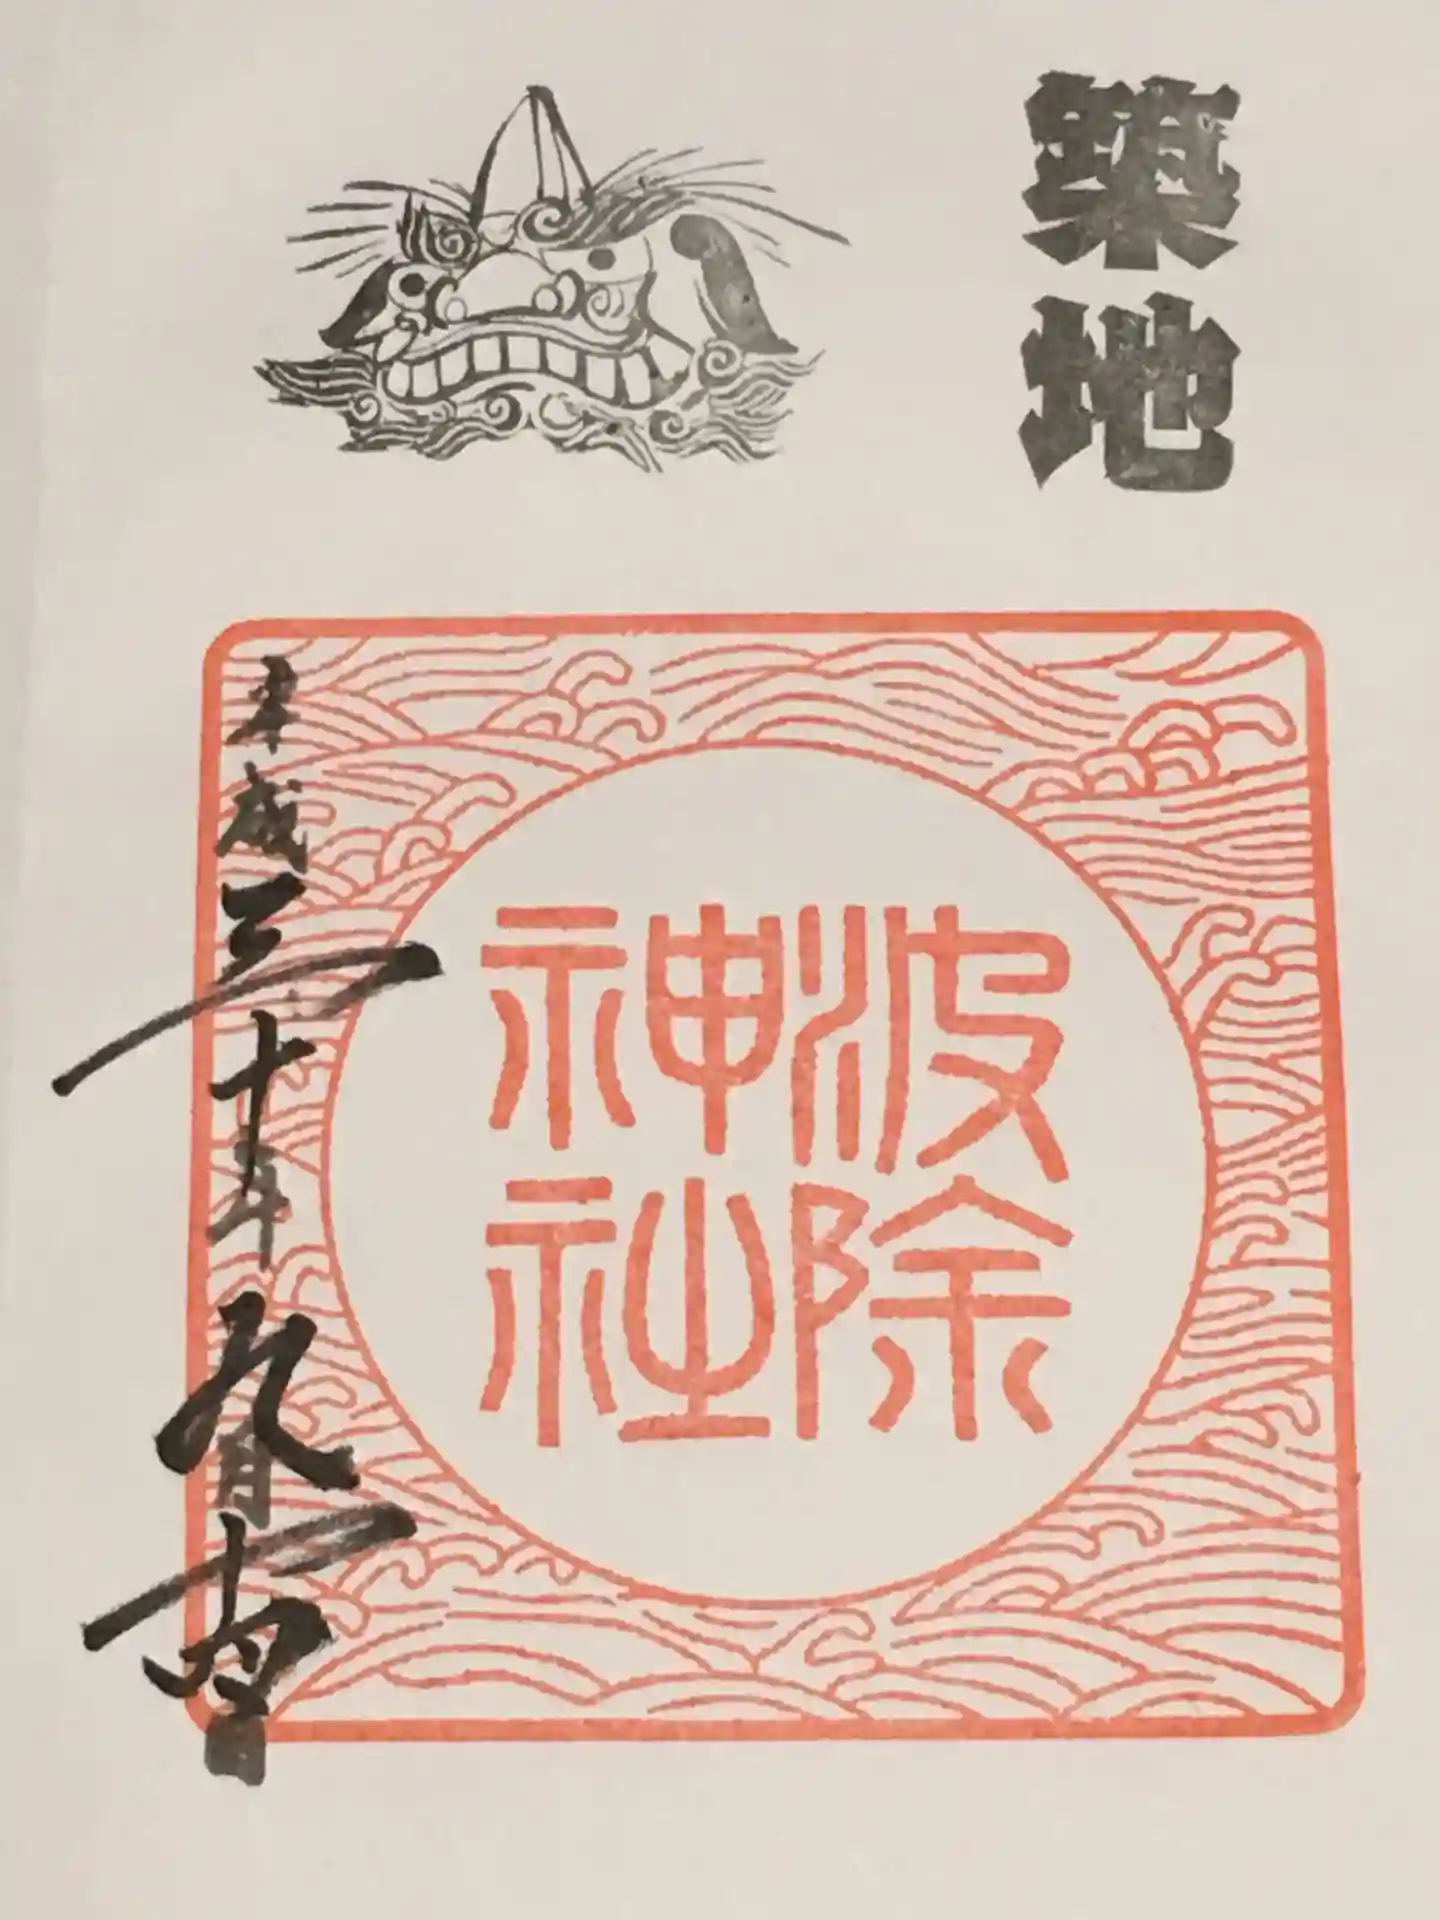 築地
波除
神社
平成三十年九月十四日